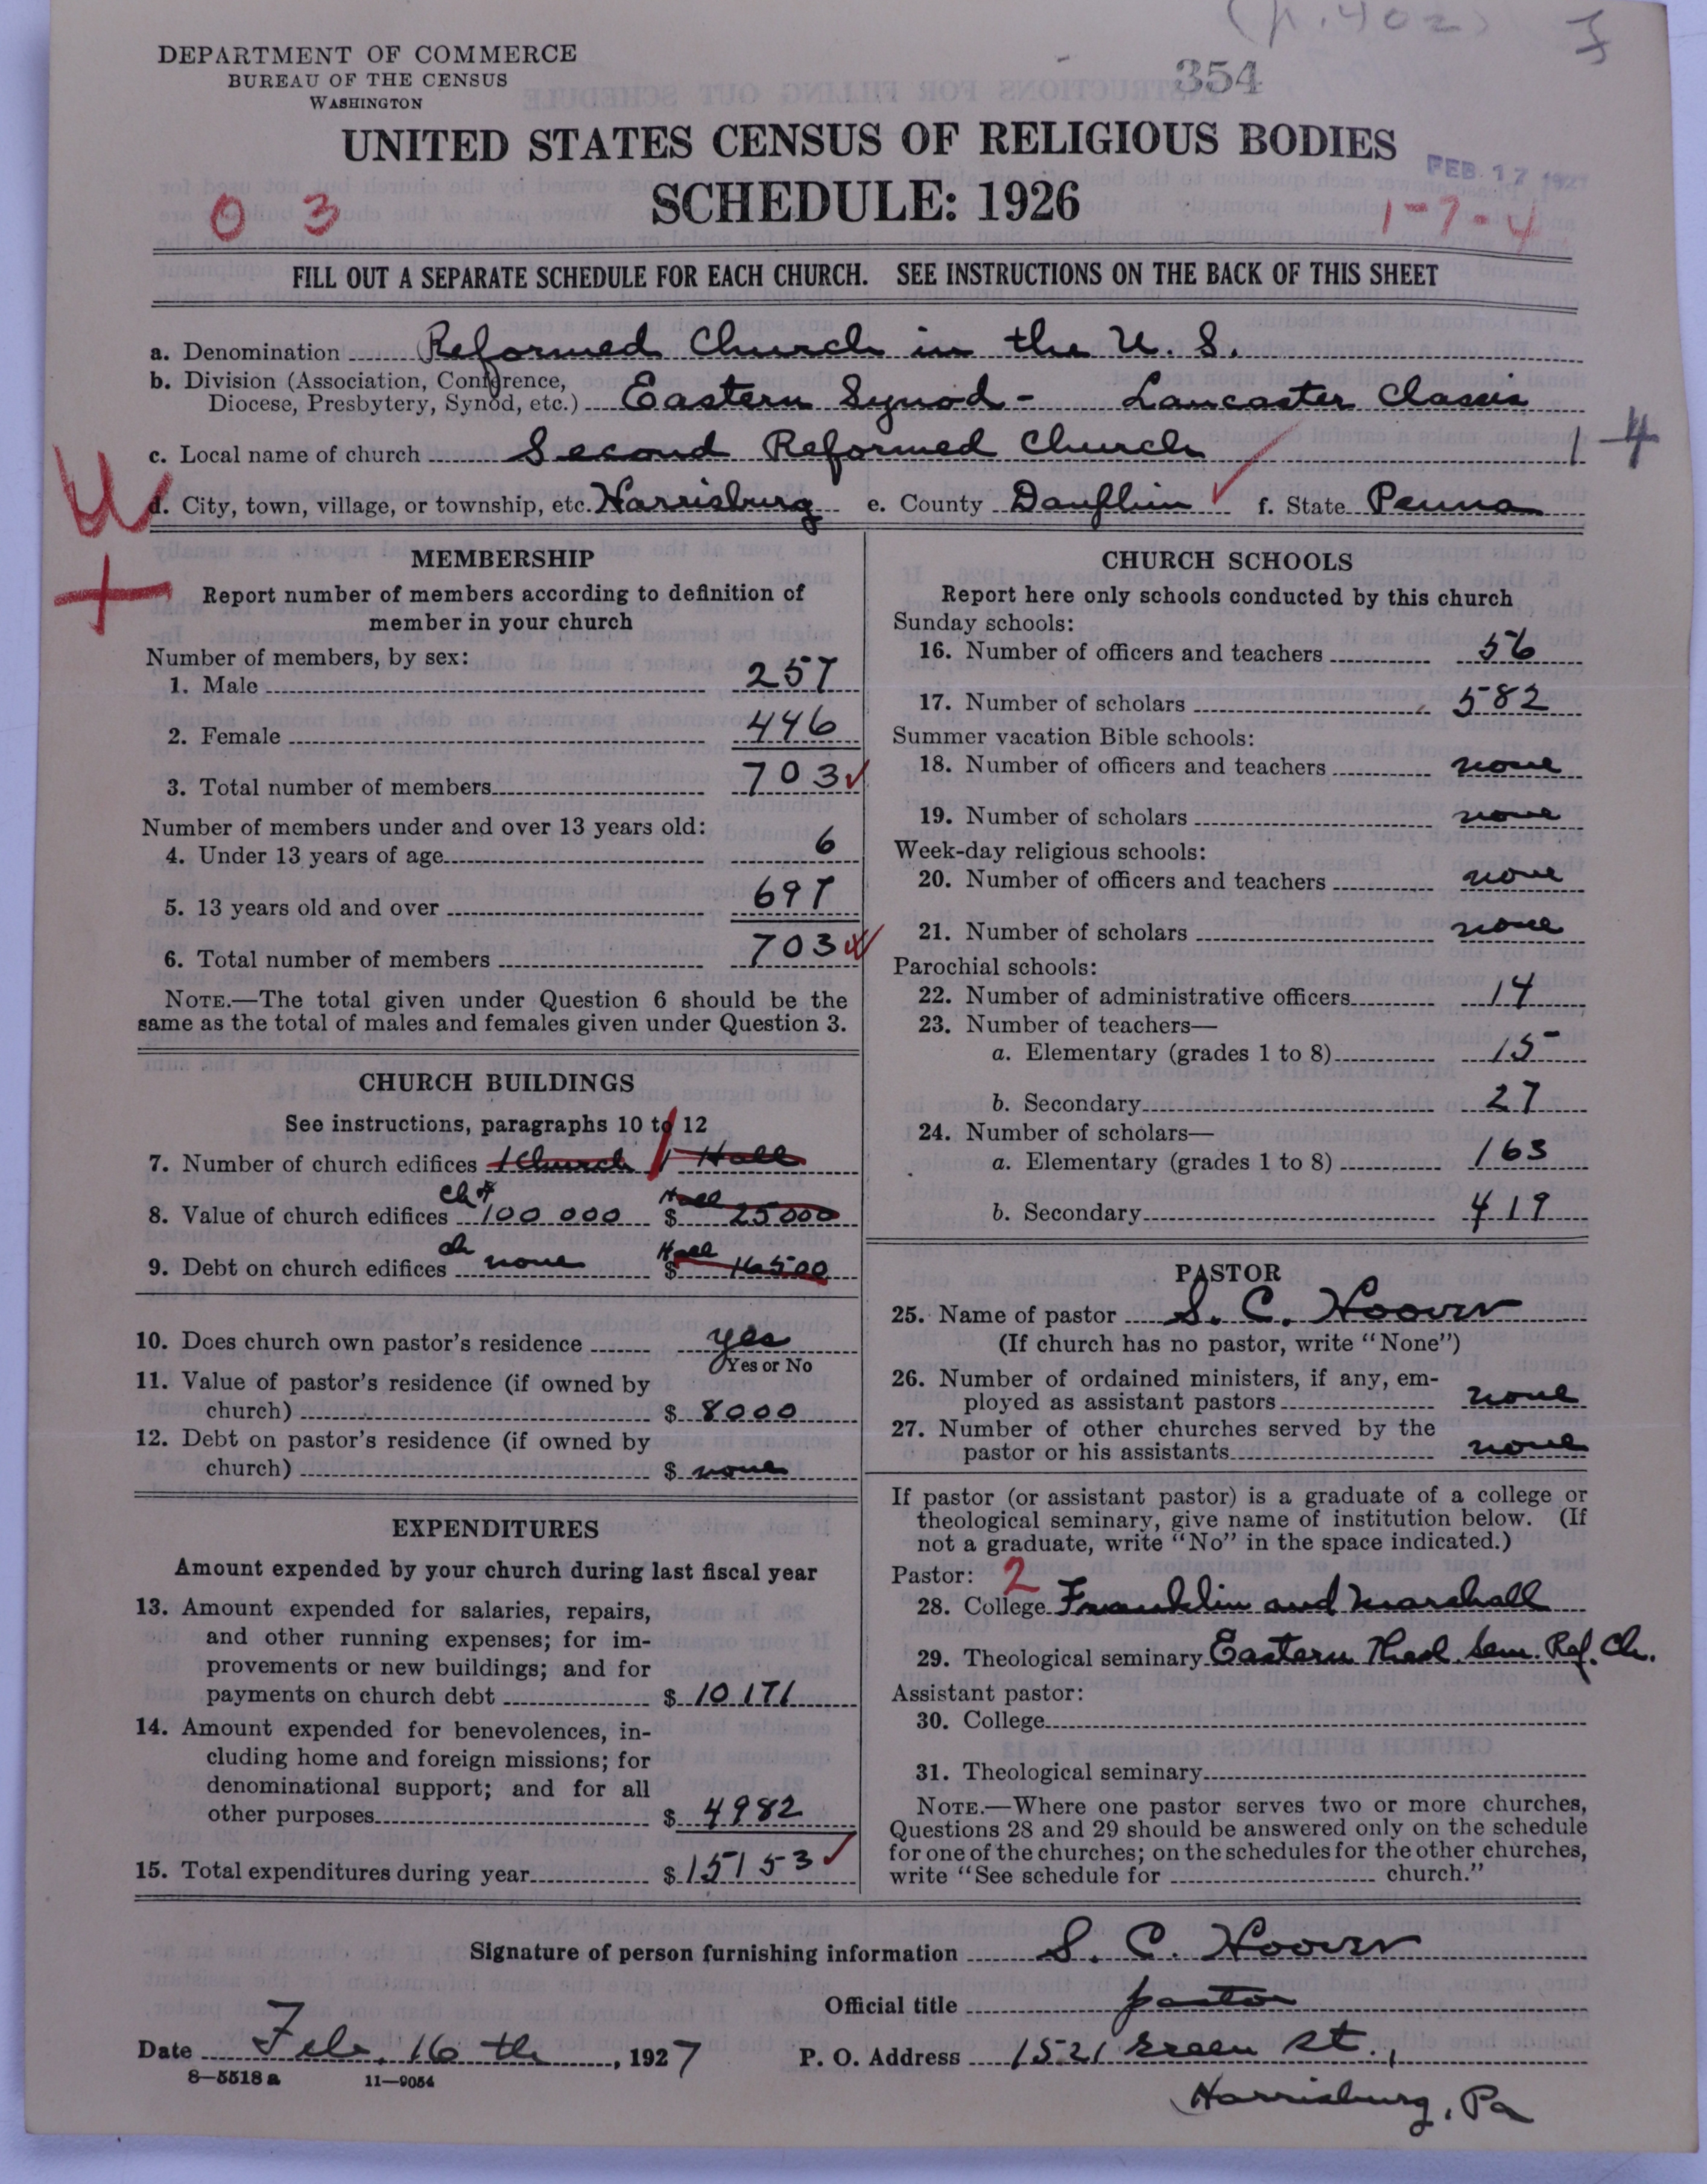 (p. 402)
DEPARTMENT OF COMMERCE
BUREAU OF THE CENSUS
WASHINGTON
354
UNITED STATES CENSUS OF RELIGIOUS BODIES
FEB 17 1927
SCHEDULE: 1926
0 3
1-7-4
FILL OUT A SEPARATE SCHEDULE FOR EACH CHURCH. SEE INSTRUCTIONS ON THE BACK OF THIS SHEET
a. Denomination Reformed Church in the U. S.
b. Division (Association, Conference,
Diocese, Presbytery, Synod, etc.) Eastern Synod - Lancaster Classis
c. Local name of church Second Reformed Church 1-4
d. City, town, village, or township, etc. Harrisburg e. County Dauphin f. State Penna
MEMBERSHIP
Report number of members according to definition of
member in your church
Number of members, by sex:
1. Male 257
2. Female 446
3. Total number of members 703
Number of members under and over 13 years old:
4. Under 13 years of age 6
5. 13 years old and over 697
6. Total number of members 703
NOTE.—The total given under Question 6 should be the
same as the total of males and females given under Question 3.
CHURCH BUILDINGS
See instructions, paragraphs 10 to 12
7. Number of church edifices 1 Church 1 Hall
8. Value of church edifices Ch $ 100 000 Hall $ 25 000
9. Debt on church edifices ch none Hall $ 16500
10. Does church own pastor's residence yes
Yes or No
11. Value of pastor's residence (if owned by
church) $ 8000
12. Debt on pastor's residence (if owned by
church) $ none
EXPENDITURES
Amount expended by your church during last fiscal year
13. Amount expended for salaries, repairs,
and other running expenses; for im-
provements or new buildings; and for
payments on church debt $ 10 171
14. Amount expended for benevolences, in-
cluding home and foreign missions; for
denominational support; and for all
other purposes $ 4982
15. Total expenditures during year $ 15153
CHURCH SCHOOLS
Report here only schools conducted by this church
Sunday schools:
16. Number of officers and teachers 56
17. Number of scholars 582
Summer vacation Bible schools:
18. Number of officers and teachers none
19. Number of scholars none
Week-day religious schools:
20. Number of officers and teachers none
21. Number of scholars none
Parochial schools:
22. Number of administrative officers 14
23. Number of teachers—
a. Elementary (grades 1 to 8) 15
b. Secondary 27
24. Number of scholars—
a. Elementary (grades 1 to 8) 163
b. Secondary 419
PASTOR
25. Name of pastor S. C. Hoover
(If church has no pastor, write "None")
26. Number of ordained ministers, if any, em-
ployed as assistant pastors none
27. Number of other churches served by the
pastor or his assistants none
If pastor (or assistant pastor) is a graduate of a college or
theological seminary, give name of institution below. (If
not a graduate, write "No" in the space indicated.)
Pastor: 2
28. College Franklin and Marshall
29. Theological seminary Eastern Theol. Sem. Ref. Ch.
Assistant pastor:
30. College
31. Theological seminary
NOTE.—Where one pastor serves two or more churches,
Questions 28 and 29 should be answered only on the schedule
for one of the churches; on the schedules for the other churches,
write "See schedule for church."
Signature of person furnishing information S. C. Hoover
Official title pastor
Date Feb. 16 th, 1927 P. O. Address 1521 Green St.,
8—5518 a 11—9054
Harrisburg, Pa